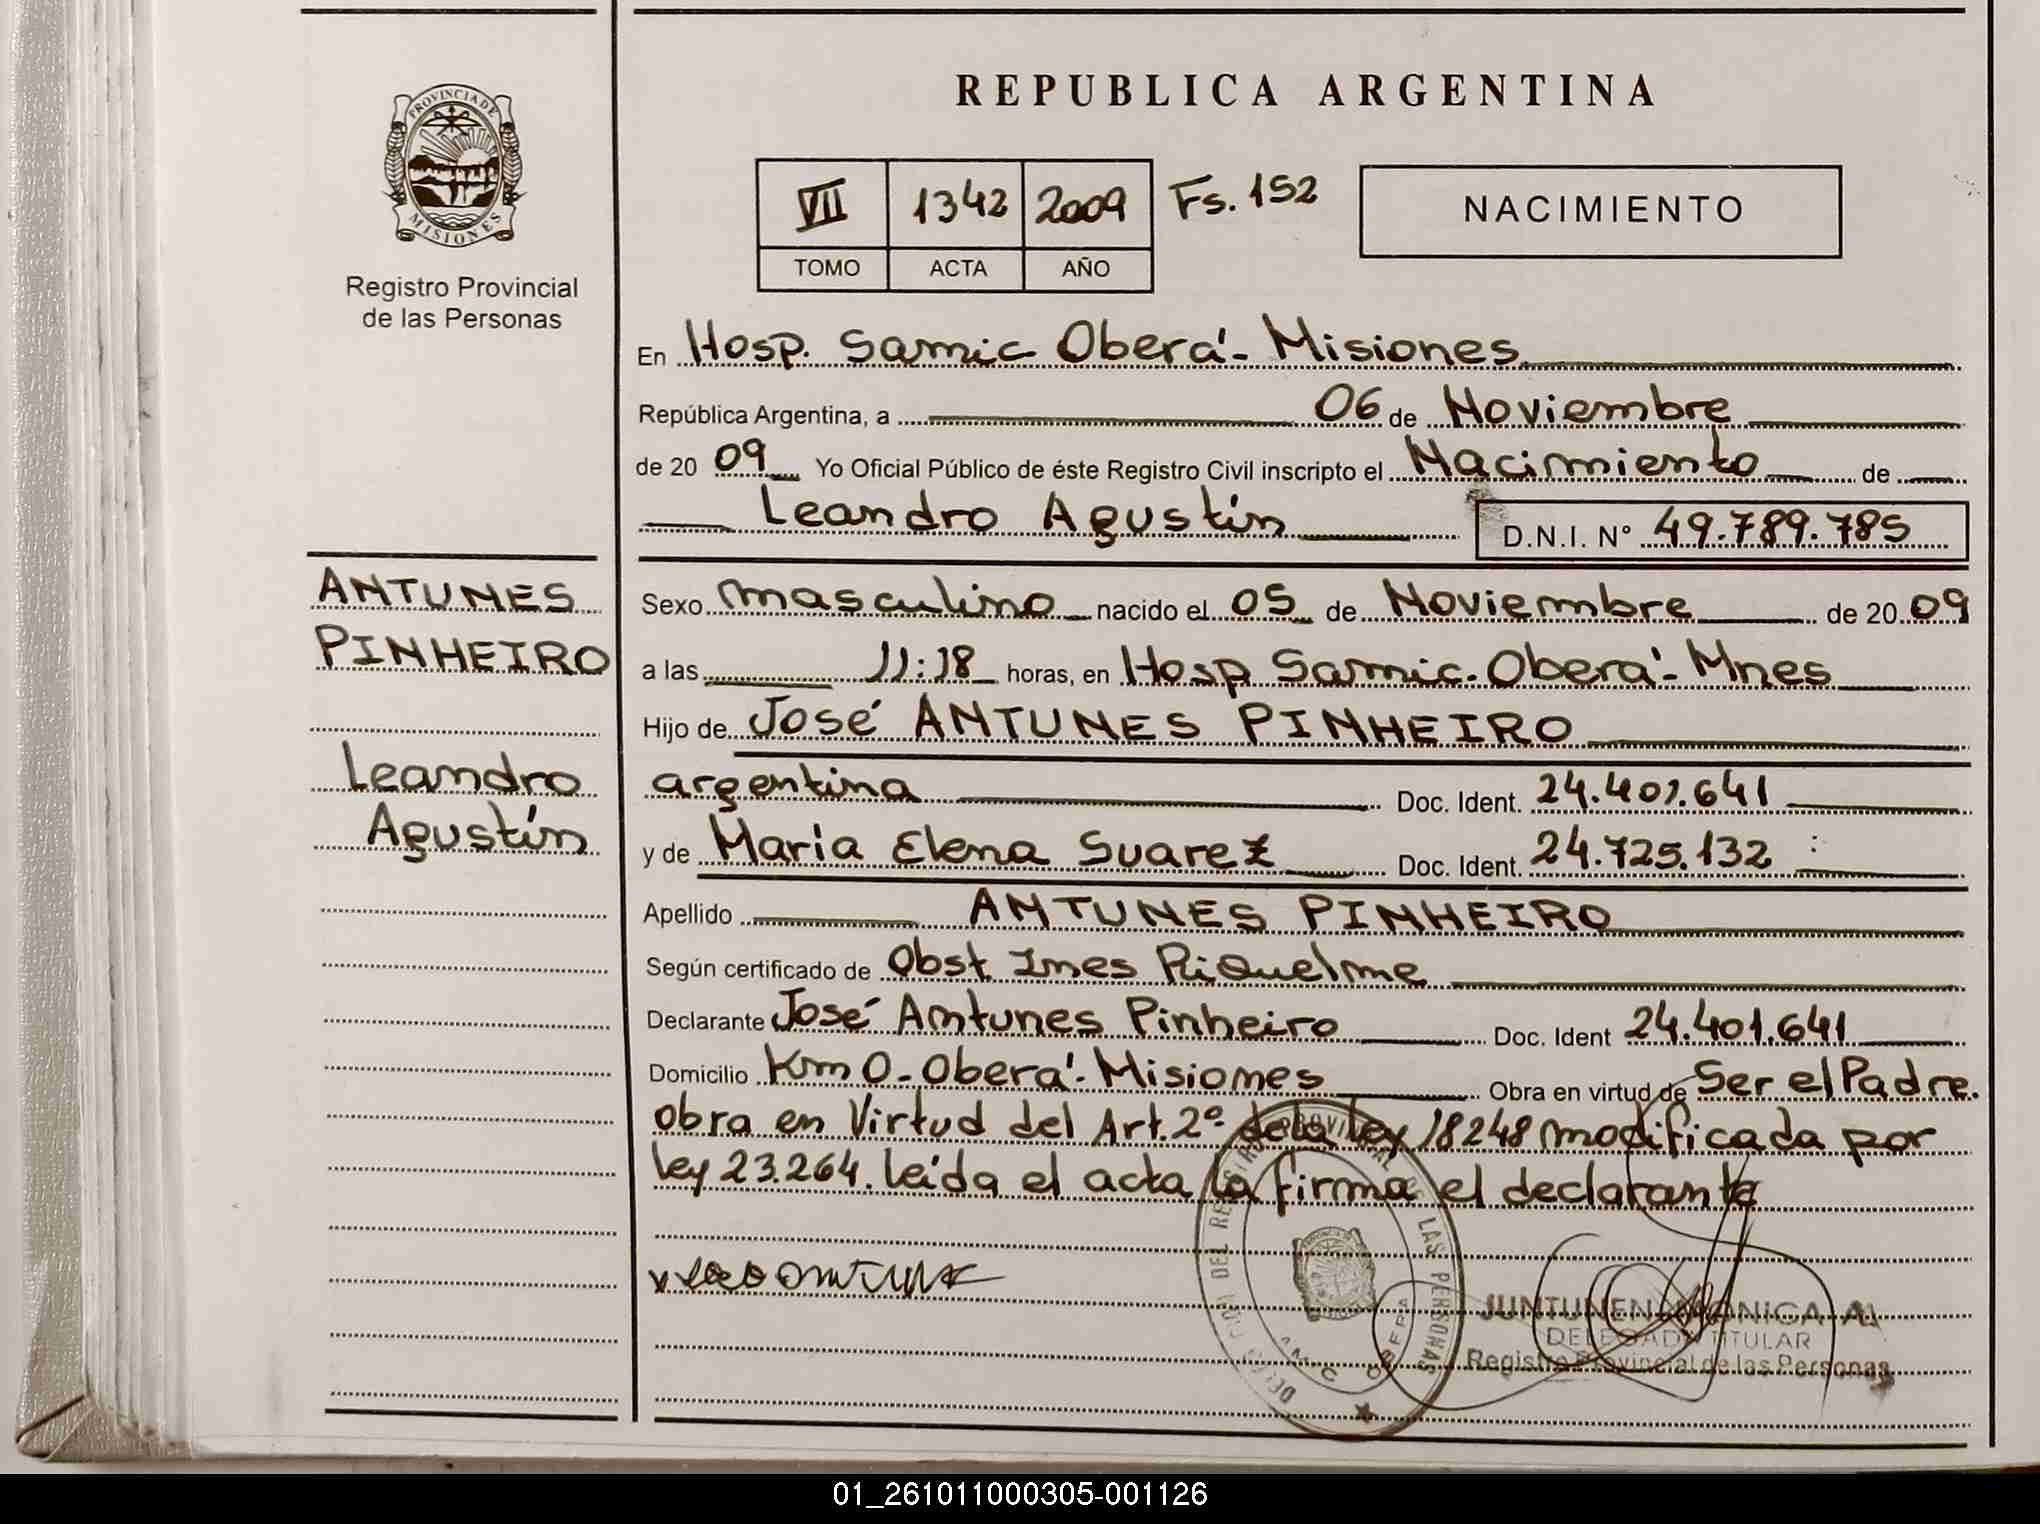 REPUBLICA ARGENTINA
PROVINCIA DE
MISIONES
Registro Provincial
de las Personas
VII 1342 2009 Fs. 152
TOMO ACTA AÑO
NACIMIENTO
En Hosp. Samic Oberá - Misiones
República Argentina, a 06 de Noviembre
de 20 09 Yo Oficial Público de éste Registro Civil inscripto el Nacimiento de
Leandro Agustín D.N.I. Nº 49.789.785
ANTUNES
PINHEIRO
Leandro
Agustín
Sexo masculino nacido el 05 de Noviembre de 20 09
a las 11:18 horas, en Hosp Samic. Oberá - Mnes
Hijo de José ANTUNES PINHEIRO
argentina Doc. Ident. 24.401.641
y de Maria Elena Suarez Doc. Ident. 24.725.132
Apellido ANTUNES PINHEIRO
Según certificado de Obst. Ines Riquelme
Declarante José Antunes Pinheiro Doc. Ident 24.401.641
Domicilio Km 0 - Oberá - Misiones Obra en virtud de Ser el Padre.
obra en Virtud del Art. 2º de la ley 18248 modificada por
ley 23.264. leída el acta la firma el declarante
DEL REGISTRO PROVINCIAL LAS PERSONAS
OBERA
JUNTUNEN MONICA A.
DELEGADA TITULAR
Registro Provincial de las Personas
01_261011000305-001126